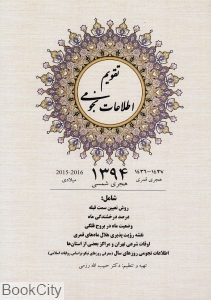 تقویم
اطلاعات نجومی
۱۴۳۷-۱۴۳۶
هجری قمری
۱۳۹۴
هجری شمسی
2015-2016
میلادی
شامل:
روش تعیین سمت قبله
درصد درخشندگی ماه
وضعیت ماه در بروج فلکی
نقشه رؤیت پذیری هلال ماه‌های قمری
اوقات شرعی تهران و مراکز بعضی از استان‌ها
اطلاعات نجومی روزهای سال (معرفی روزهای نیک و بد بر اساس روایات اسلامی)
تهیه و تنظیم: دکتر حبیب الله رزمی
BookCity
BookCity